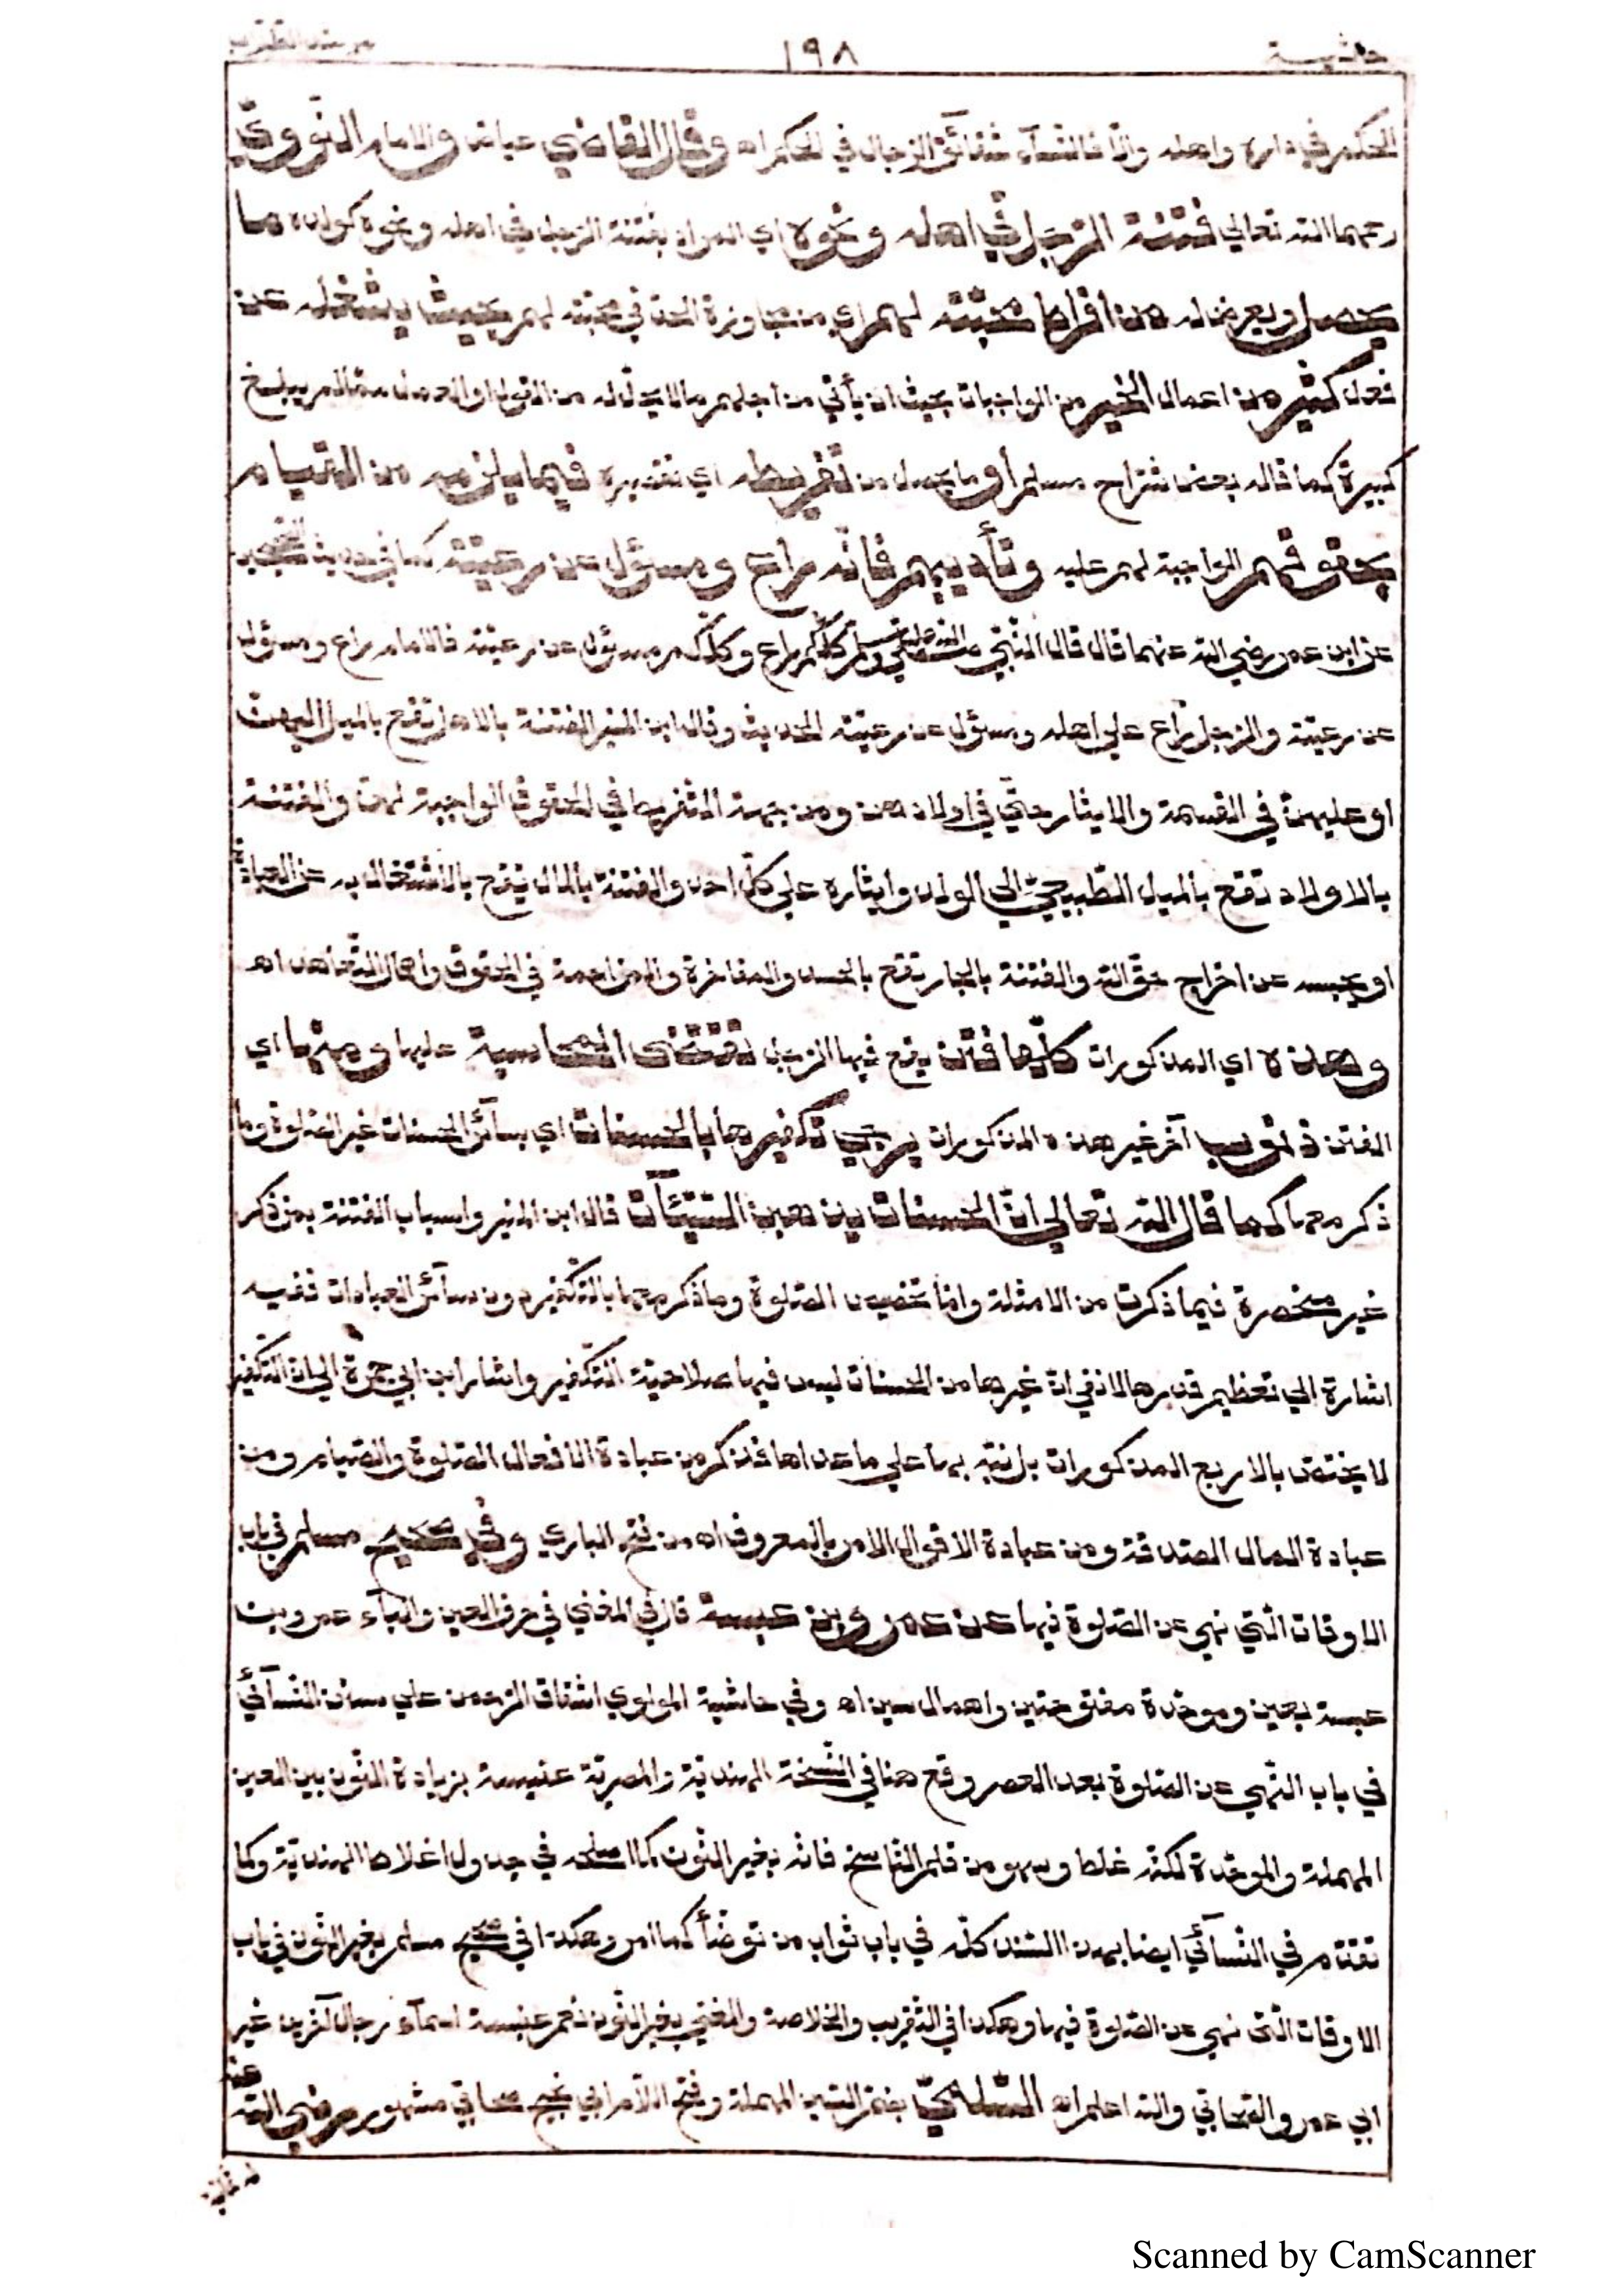 حاشية ١٩٨ مرشد الطلاب
الحكم في داره واهله والّا فالنّسآء شقآئق الرّجال في الحكم اه وقال القاضي عياض والامام النّوويّ
رحمهما اللّه تعالي فتنة الرّجل في اهله ونحوه اي المراد بفتنة الرّجل في اهله ونحوه كولده ما
يحصل ويعرض له من افراط محبّته لهم اي من مجاوزة الحدّ في محبّته لهم بحيث يشغله عن
فعل كثير من اعمال الخير من الواجبات بحيث ان يأتي من اجلهم مالا يحلّ له من القول او العمل ممّا لم يبلغ
كبيرة كما قاله بعض شرّاح مسلم أو ما يحصل من تفريطه اي تقصيره فيما يلزمه من القيام
بحقوقهم الواجبة لهم عليه وتأديبهم فانّه راع ومسؤل عن رعيّته كما في حديث الصّحيحين
عن ابن عمر رضي اللّه عنهما قال قال النّبيّ صلّي اللّه عليه وسلّم كلّكم راع وكلّكم مسؤل عن رعيّته فالامام راع ومسؤل
عن رعيّته والرّجل راع علي اهله ومسؤل عن رعيّته الحديث وقال ابن المنير الفتنة بالاهل تقع بالميل اليهنّ
او عليهنّ في القسمة والايثار حتّي في اولادهنّ ومن جهة التّفريط في الحقوق الواجبة لهنّ والفتنة
بالاولاد تقع بالميل الطّبيعيّ الي الولد وايثاره علي كلّ احد والفتنة بالمال يقع بالاشتغال به عن العبادة
او بحبسه عن اخراج حقّ اللّه والفتنة بالجار تقع بالحسد والمفاخرة والمزاحمة في الحقوق واهمال التّعاهد اه
وهذه اي المذكورات كلّها فتن يقع فيها الرّجل تقتضي المحاسبة عليها ومنها اي
الفتن ذنوب آخر غير هذه المذكورات يرجي تكفيرها بالحسنات اي بسآئر الحسنات غير الصّلوة وما
ذكر معها كما قال اللّه تعالي انّ الحسنات يذهبن السّيّئات قال ابن المنير واسباب الفتنة بمن ذكر
غير منحصرة فيما ذكرت من الامثلة وامّا تخصيص الصّلوة وما ذكر معها بالتّكفير دون سآئر العبادات ففيه
اشارة الي تعظيم قدرها لا نفي انّ غيرها من الحسنات ليس فيها صلاحيّة التّكفير واشار ابن ابي جمرة الي ان التّكفير
لا يختصّ بالاربع المذكورات بل نبّه بها علي ما عداها فذكر من عبادة الافعال الصّلوة والصّيام ومن
عبادة المال الصّدقة ومن عبادة الاقوال الامر بالمعروف اه من فتح الباري وفي صحيح مسلم في باب
الاوقات الّتي نهي عن الصّلوة فيها عن عمرو بن عبسة قال في المغني في حرف العين والبآء عمرو بن
عبسة بعين وموحّدة مفتوحتين واهمال سين اه وفي حاشية المولوي اشفاق الرّحمن علي سنن النّسآئيّ
في باب النّهي عن الصّلوة بعد العصر وقع هنا في النّسخة الهنديّة والمصريّة عنبسة بزيادة النّون بين العين
المهملة والموحّدة لكنّه غلط وسهو من قلم النّاسخ فانّه بغير النّون كما اصلحه في جدول اغلاط الهنديّة وكما
تقدّم في النّسآئي ايضا بهذا السّند كلّه في باب ثواب من توضّأ كما امر وهكذا في صحيح مسلم بغير النّون في باب
الاوقات الّتي نهي عن الصّلوة فيها وهكذا في التّقريب والخلاصة والمغني بغير النّون نعم عنبسة اسمآء رجال آخرين غير
ابي عمرو الصّحابي واللّه اعلم اه السّلميّ بضمّ السّين المهملة وفتح اللّام ابي نجيح صحابيّ مشهور رضي اللّه عنه
Scanned by CamScanner